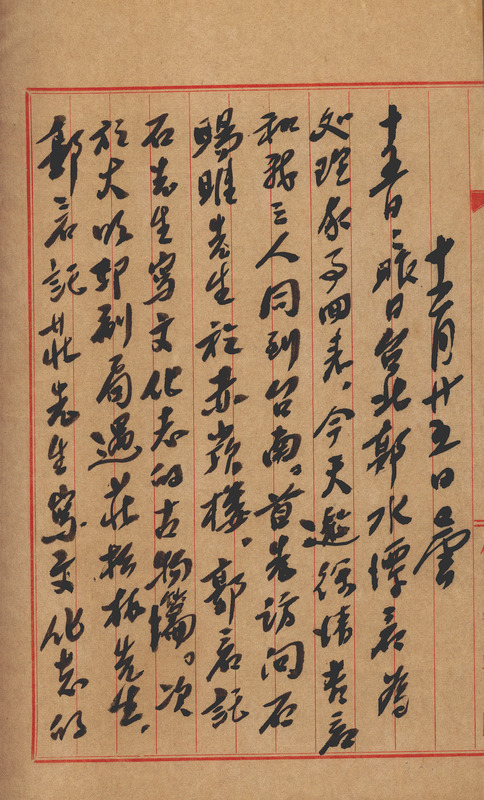 十二月廿五日 曇
十五日 日台北郭水潭君為
処理家事回来，今天邀徐清吉君
和我三人同到台南。首先訪問石
暘睢先生於赤崁樓，郭君託
石先生寫文化志的古物篇。次
於大明印刷局遇莊松林先生，
郭君託莊先生寫文化志的